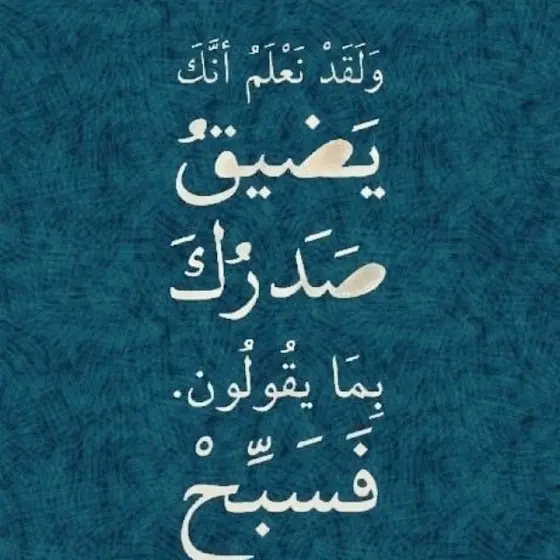 وَلَقَدْ نَعْلَمُ أنَّكَ
يَضيقُ
صَدَرُكَ
بِمَا يقُولُون.
فَسَبِّحْ